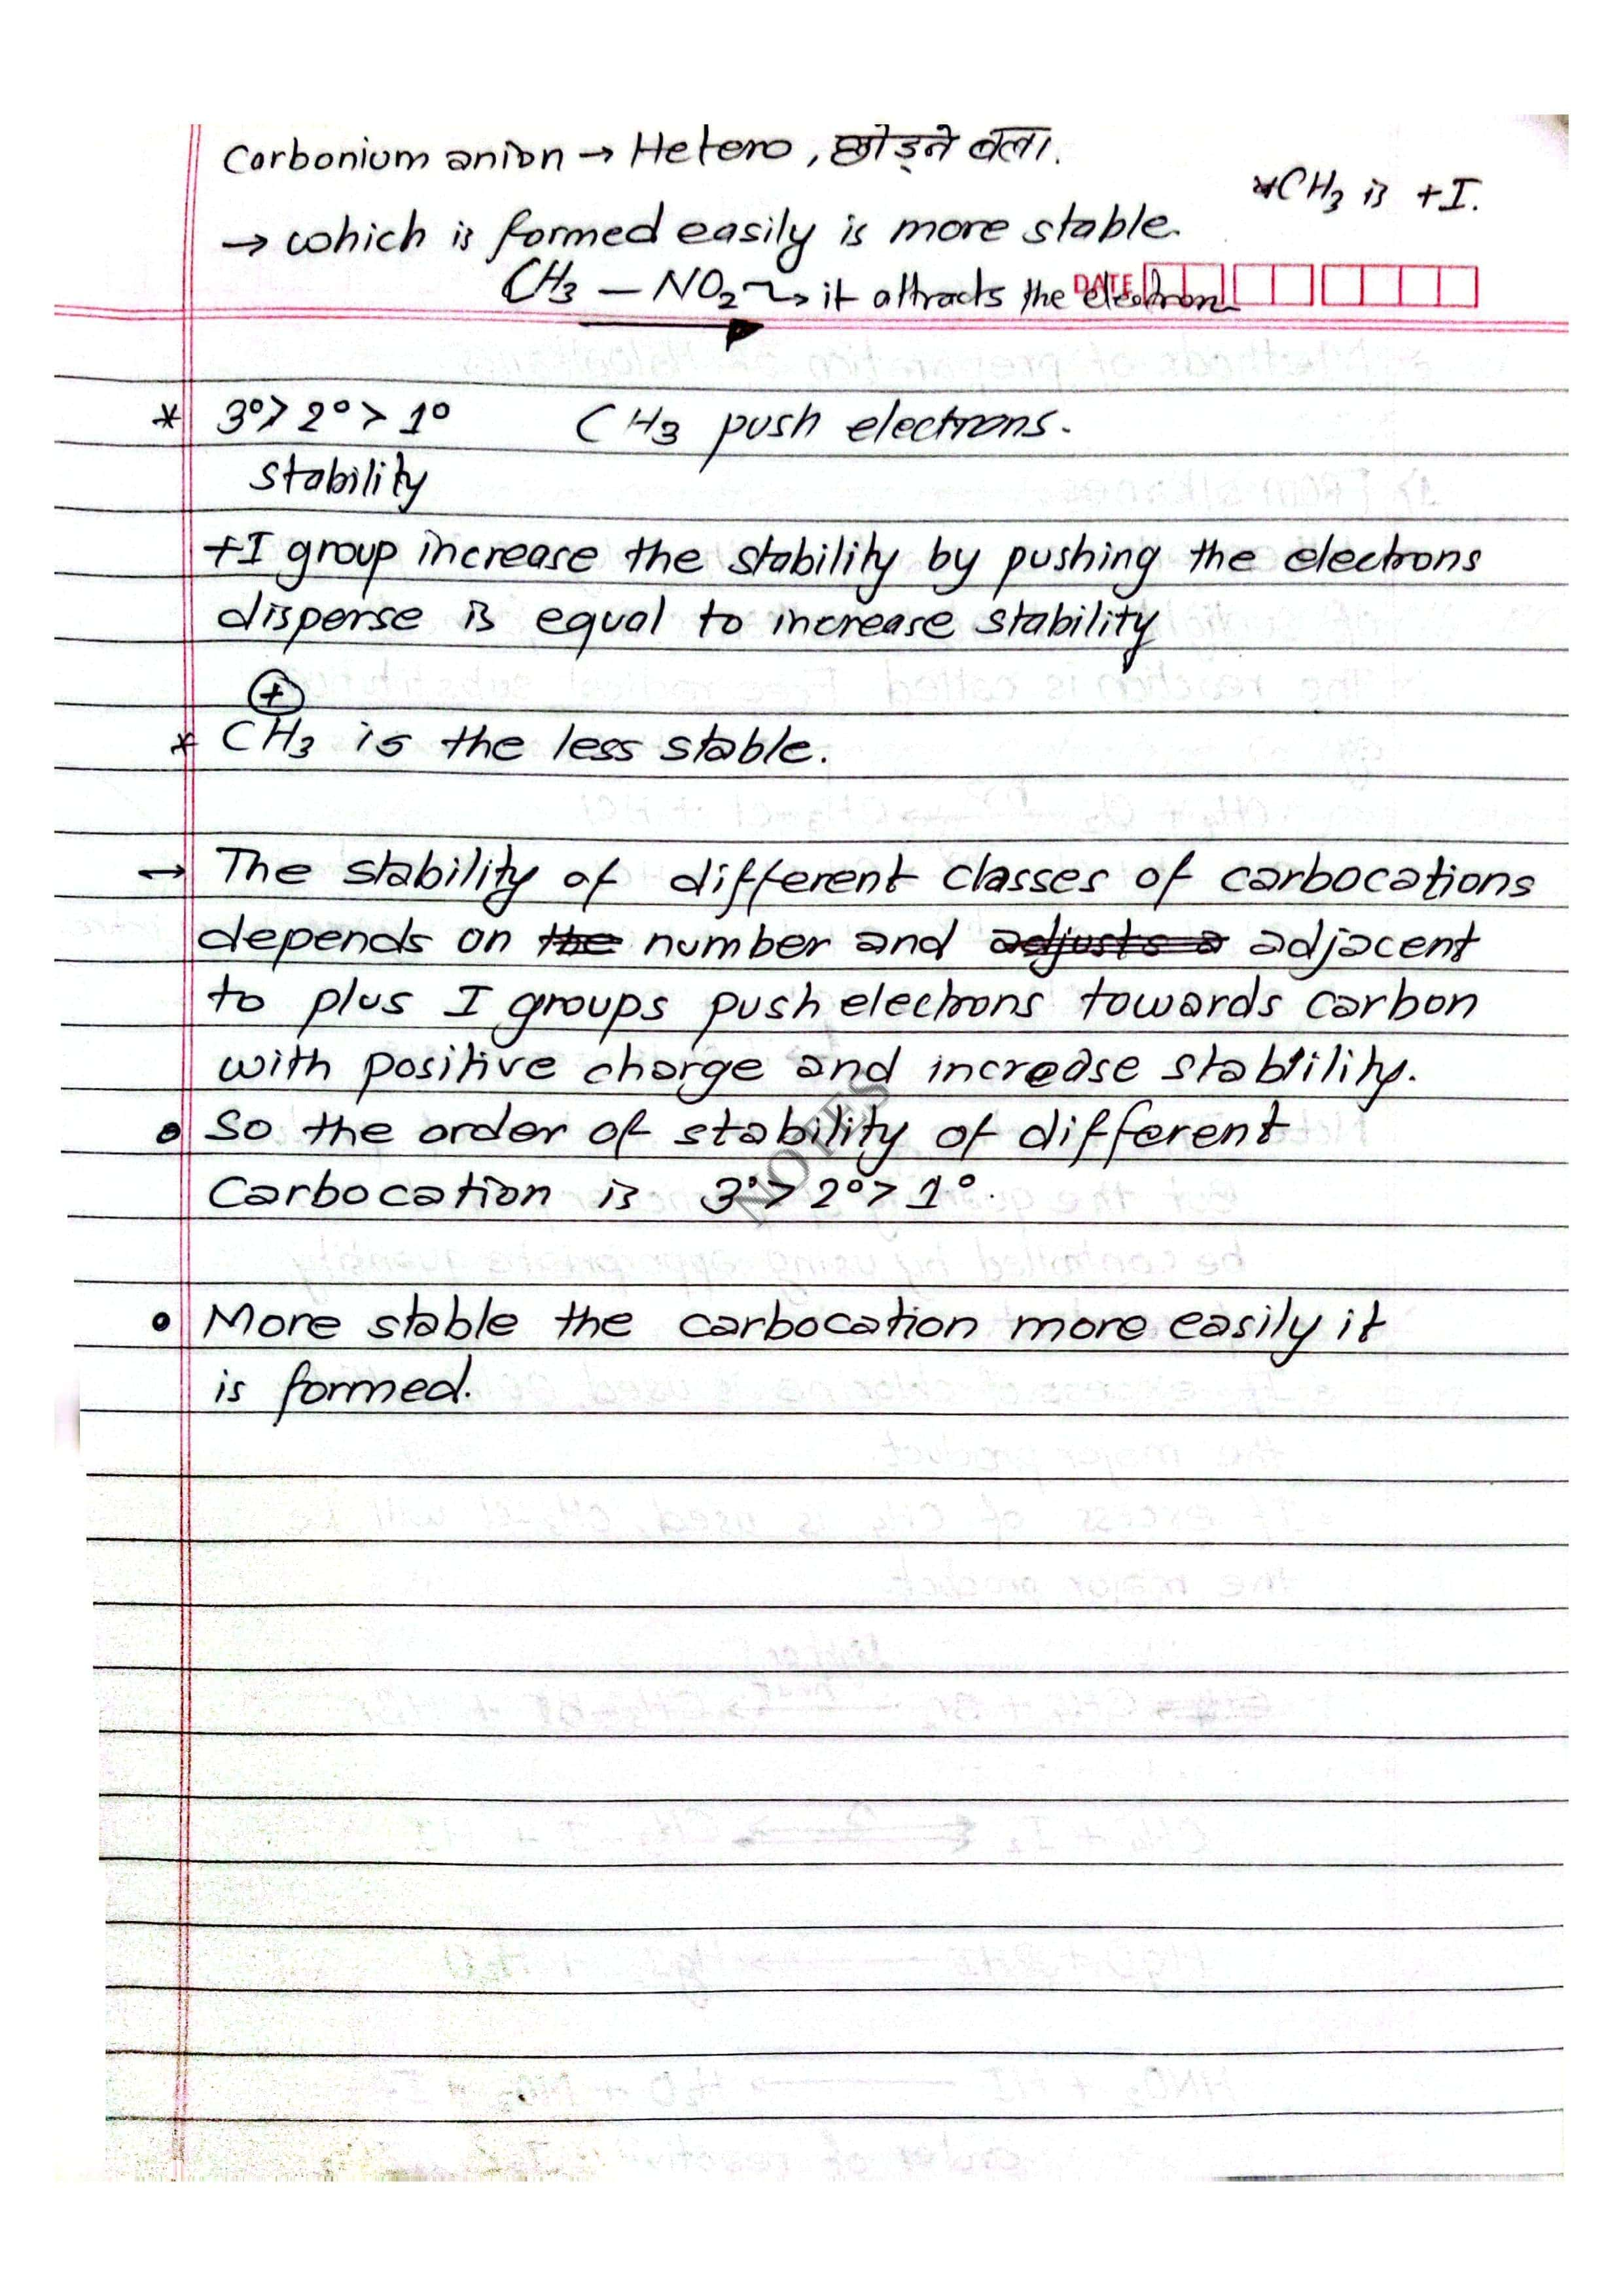 Carbonium anion → Hetero, छोड़ने वला.
*CH3 is +I.
→ which is formed easily is more stable.
CH3 — NO2 → it attracts the electron
DATE
* 3°> 2°> 1° CH3 push electrons.
stability
+I group increase the stability by pushing the electrons
disperse is equal to increase stability
⊕
* CH3 is the less stable.
→ The stability of different classes of carbocations
depends on the number and adjusts a adjacent
to plus I groups push electrons towards carbon
with positive charge and increase stability.
• So the order of stability of different
Carbocation is 3°> 2°> 1°.
NOTES
• More stable the carbocation more easily it
is formed.